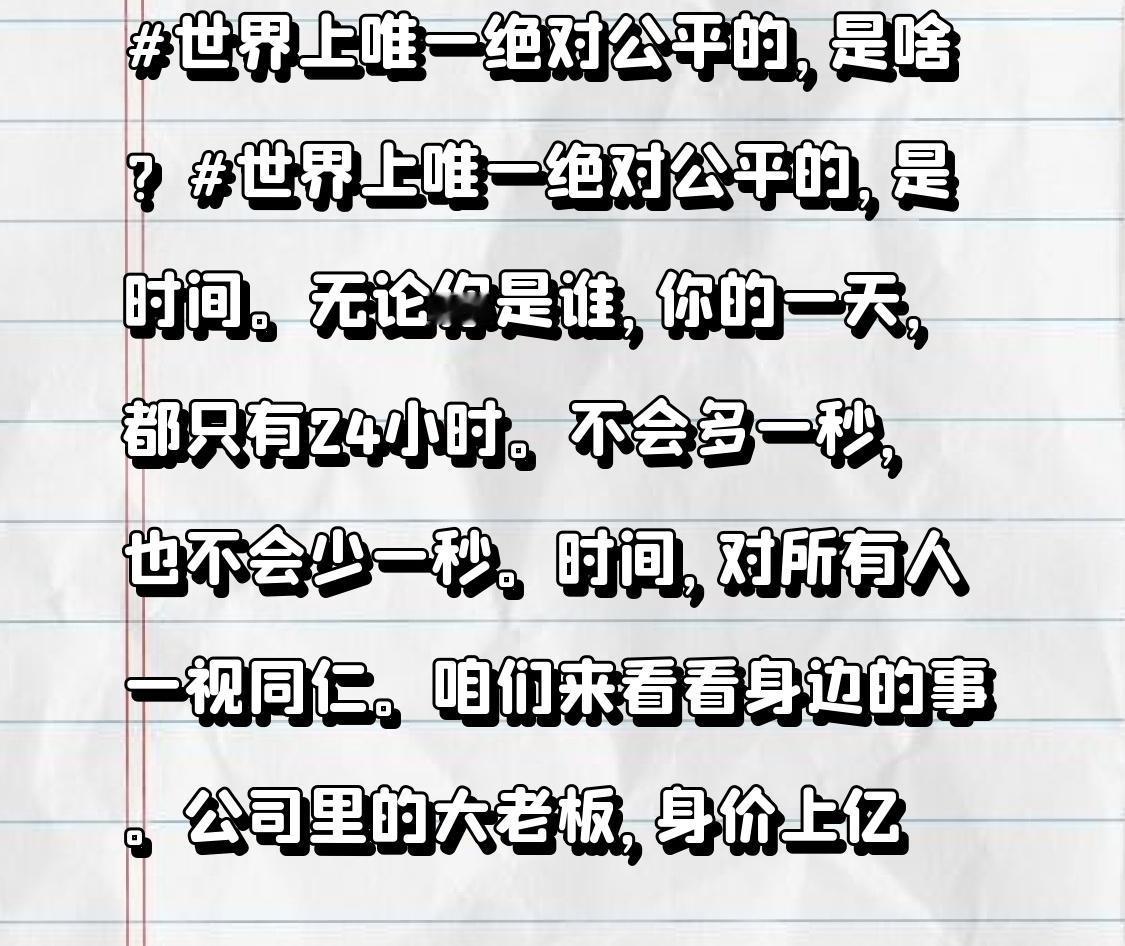 #世界上唯一绝对公平的,是啥
? #世界上唯一绝对公平的,是
时间。无论你是谁,你的一天,
都只有24小时。不会多一秒,
也不会少一秒。时间,对所有人
一视同仁。咱们来看看身边的事
。公司里的大老板,身价上亿